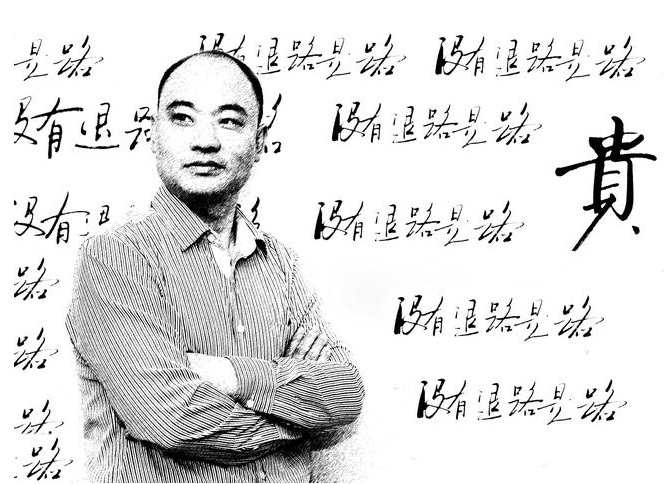 是路 没有退路是路 没有退路是路
没有退路 没有退路是路
貴
没有退 没有退路是路
路
没有退路是路
路
没有退路是路
路
路